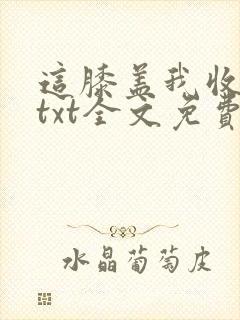 這膝蓋我收
txt全文免費
水晶葡萄皮